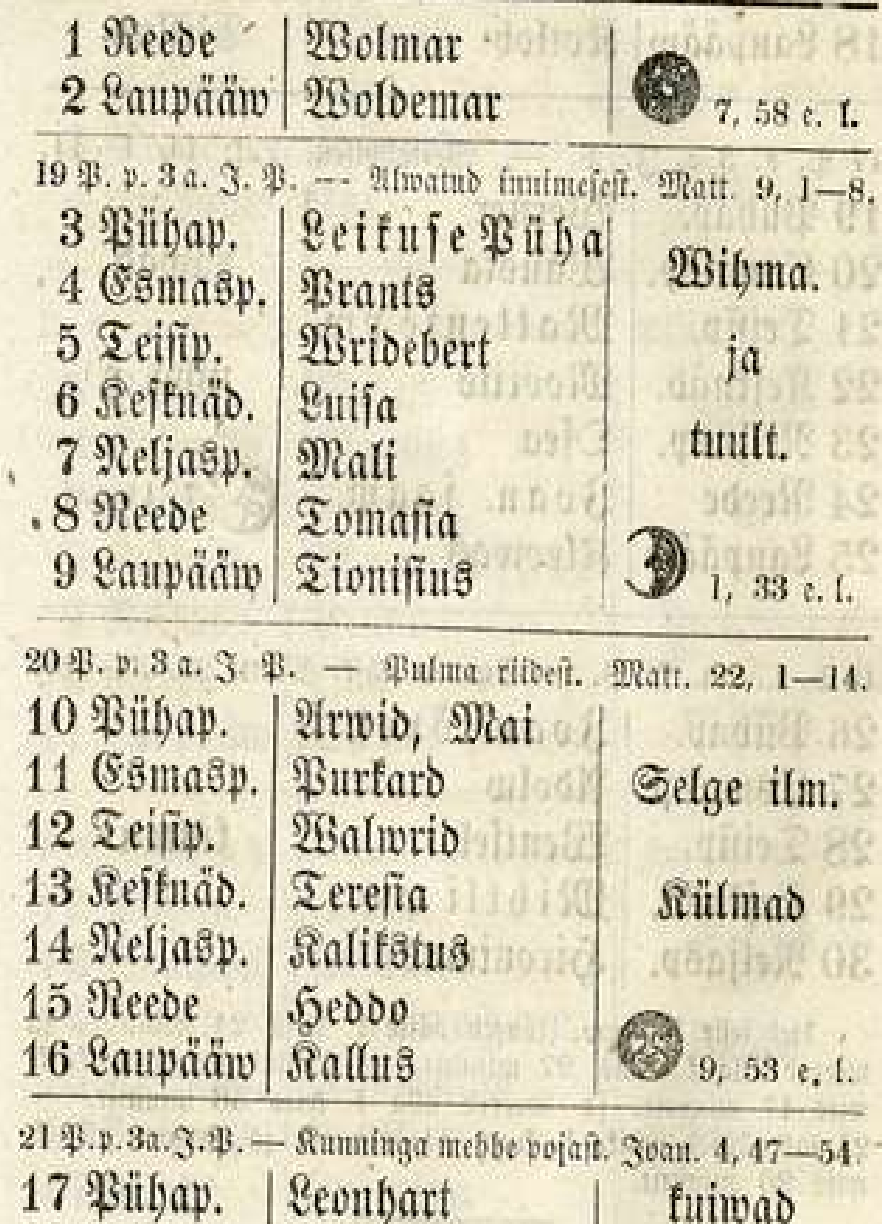 1 Reede Wolmar
2 Laupääw Woldemar 7, 58 e. l.
19 P. p. 3 a. J. P. — Alwatud innimesest. Matt. 9, 1—8.
3 Pühap. Leikuse Püha
4 Esmasp. Prants Wihma.
5 Teisip. Wridebert ja
6 Kesknäd. Luisa
7 Neljasp. Mali tuult.
8 Reede Tomasia
9 Laupääw Tionisius 1, 33 e. l.
20 P. p. 3 a. J. P. — Pulma riidest. Matt. 22, 1—14.
10 Pühap. Arwid, Mai
11 Esmasp. Purkard Selge ilm.
12 Teisip. Walwrid
13 Kesknäd. Teresia Külmad
14 Neljasp. Kalikstus
15 Reede Heddo
16 Laupääw Kallus 9, 53 e. l.
21 P. p. 3 a. J. P. — Kunninga mehhe pojast. Joan. 4, 47—54.
17 Pühap. Leonhart kuiwad